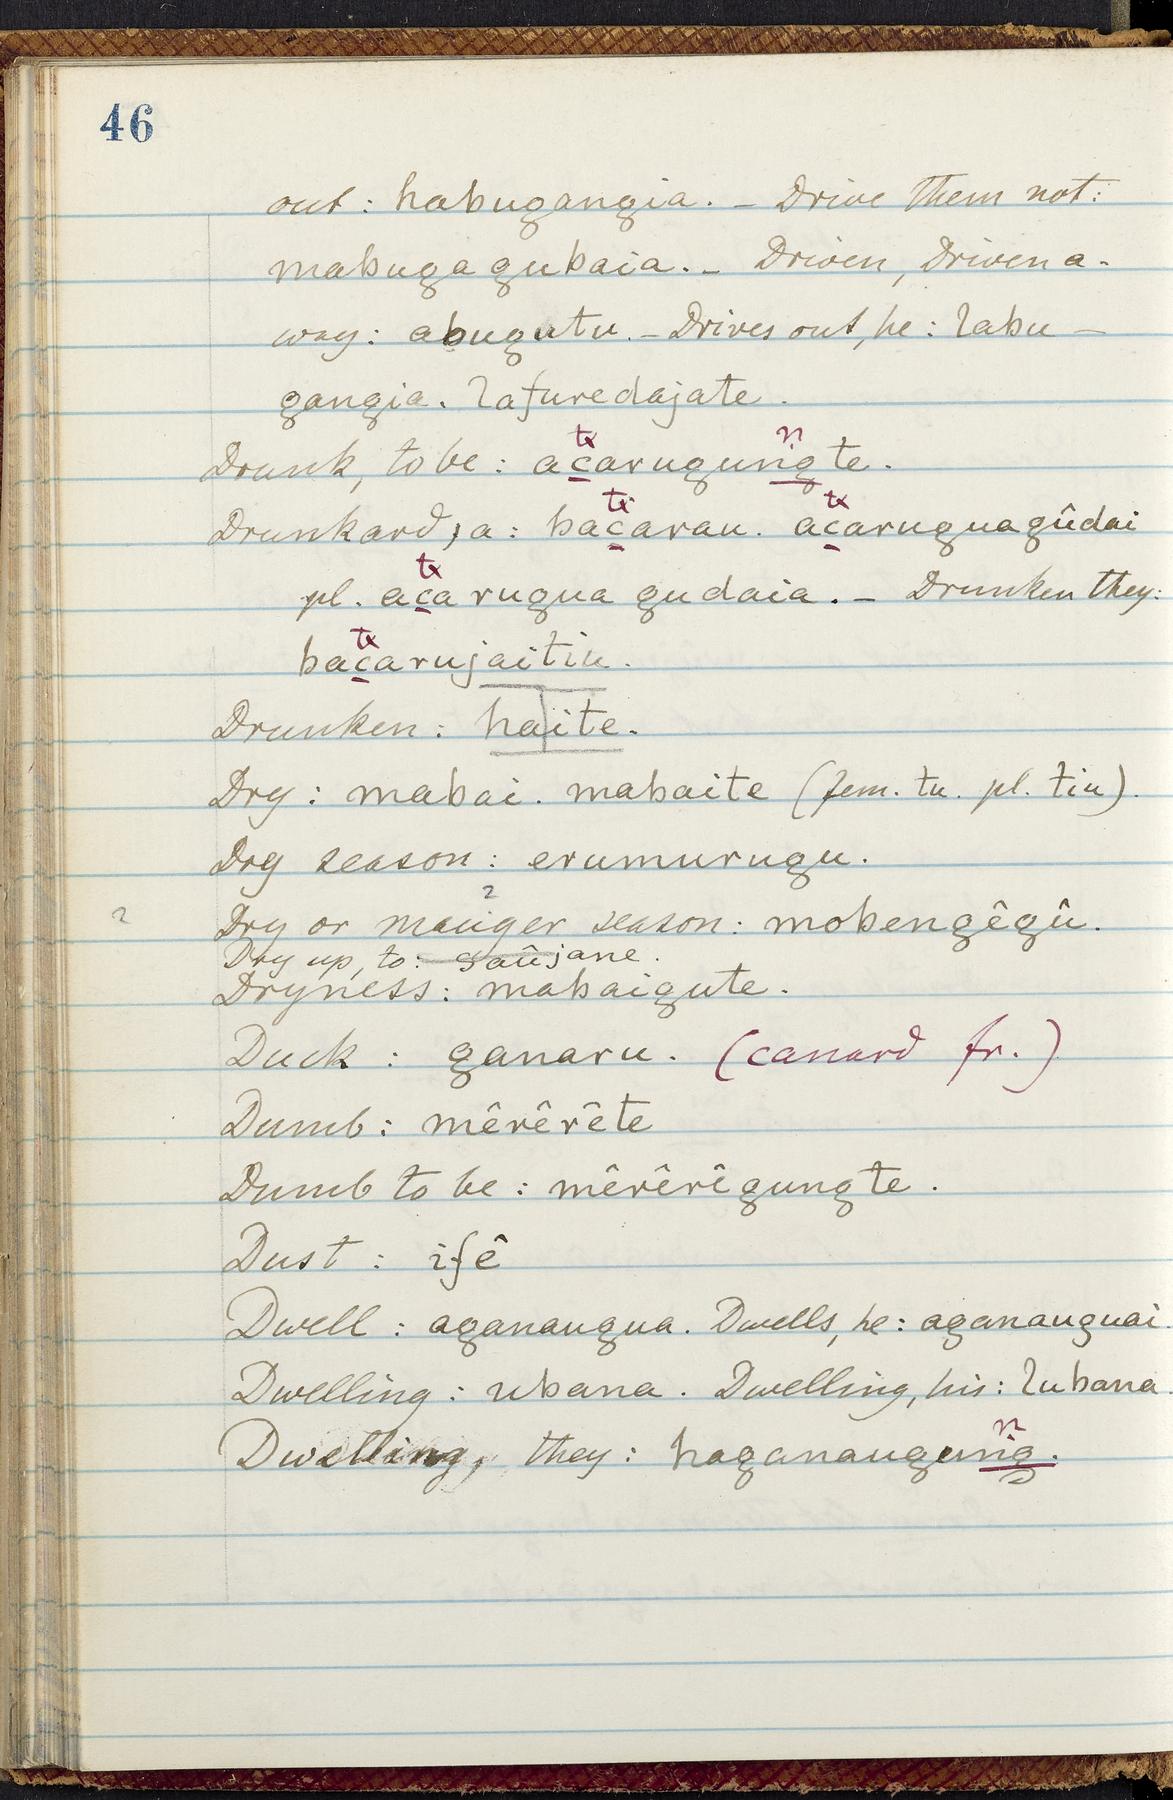 46
out: habugangia. – Drive them not:
mabugagubaia. – Driven, Driven a-
way: abugutu. – Drives out, he: labu –
gangia. lafuredajate.
tx n
Drunk, to be: acarugungte.
tx tx
Drunkard, a: bacarau. acaruguagûdai
tx
pl. acarugua gudaia. – Drunken they:
tx
bacarujaitiu.
Drunken: haite.
Dry: mabai. mabaite (fem. tu. pl. tiu).
Dry season: erumurugu.
?
? Dry or mauger season: mobengêgû.
Dry up, to: saûjane.
Dryness: mabaigute.
Duck: ganaru. (canard fr.)
Dumb: mêrêrête
Dumb to be: mêrêrêgungte.
Dust: ifê
Dwell: aganaugua. Dwells, he: aganauguai.
Dwelling: ubana. Dwelling, his: lubana.
n
Dwelling, they: haganaugung.